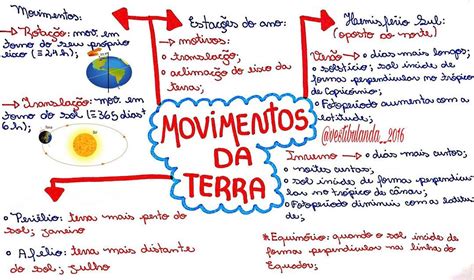 Movimentos:
→ Rotação: mov. em
torno do seu próprio
eixo (≅ 24 h);
→ Translação: mov. em
torno do sol (≅ 365 dias
6 h);
• Periélio: terra mais perto do
sol; janeiro
• Afélio: terra mais distante
do sol; julho
Estações do ano:
→ motivos:
• translação;
• inclinação do eixo da
terra;
MOVIMENTOS
DA
TERRA
Hemisfério Sul:
(oposto do norte)
Verão → • dias mais longos;
• solstício: sol incide de
formas perpendiculares no trópico
de Capricórnio;
• Fotoperíodo aumenta com a
latitude;
@vestibulanda_2016
Inverno → • dias mais curtos;
• noites curtas;
• sol incide de formas perpendi-
culares no trópico de câncer;
• Fotoperíodo diminui com a latitu-
de;
*Equinócio: quando o sol incide de
formas perpendiculares nas linhas do
Equador;